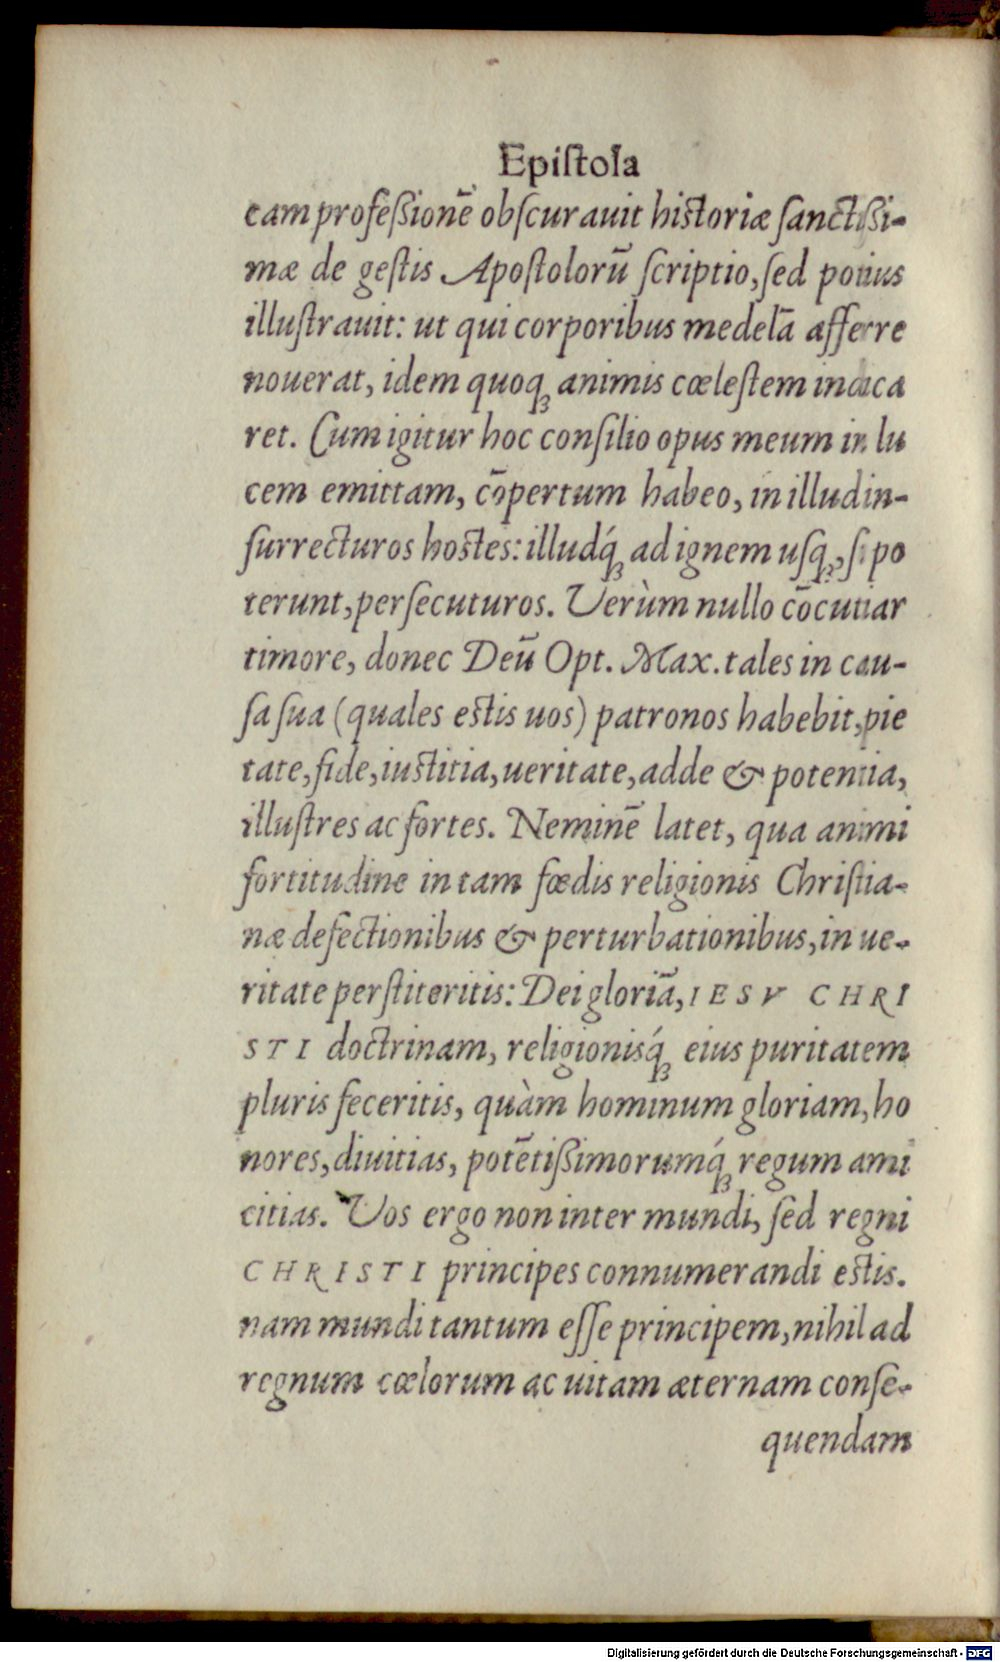 Epiſtola
eam profeßionē obſcurauit hiſtoriæ ſanctißi-
mæ de geſtis Apoſtolorū ſcriptio, ſed potius
illuſtrauit: ut qui corporibus medelā afferre
nouerat, idem quoqꝫ animis cœleſtem indica
ret. Cum igitur hoc conſilio opus meum in lu
cem emittam, cōpertum habeo, in illud in-
ſurrecturos hoſtes: illudq́ꝫ ad ignem uſqꝫ, ſi po
terunt, perſecuturos. Verùm nullo cōcutiar
timore, donec Deū Opt. Max. tales in cau-
ſa ſua (quales eſtis uos) patronos habebit, pie
tate, fide, iuſtitia, ueritate, adde & potentia,
illuſtres ac fortes. Neminē latet, qua animi
fortitudine in tam fœdis religionis Chriſtia-
næ defectionibus & perturbationibus, in ue-
ritate perſtiteritis: Dei gloriā, IESV CHRI
STI doctrinam, religionisq́ꝫ eius puritatem
pluris feceritis, quàm hominum gloriam, ho
nores, diuitias, potētißimorumq́ꝫ regum ami
citias. Vos ergo non inter mundi, ſed regni
CHRISTI principes connumerandi eſtis.
nam mundi tantum eſſe principem, nihil ad
regnum cœlorum ac uitam æternam conſe-
quendam
Digitalisierung gefördert durch die Deutsche Forschungsgemeinschaft - DFG